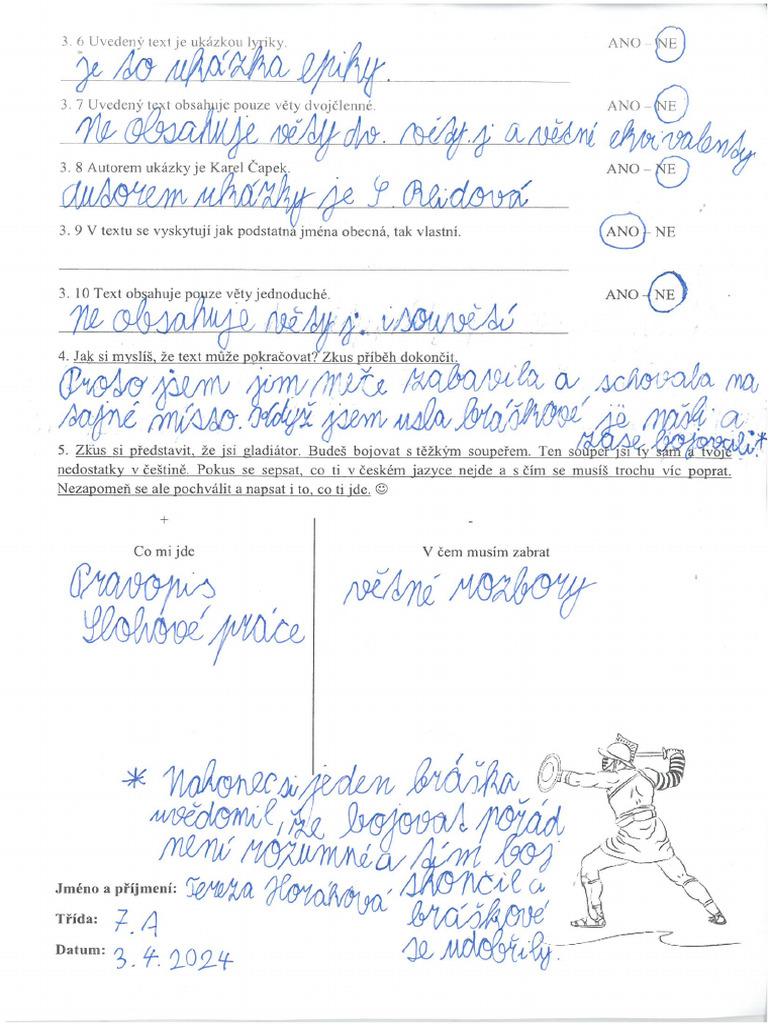 3. 6 Uvedený text je ukázkou lyriky. ANO – NE
je to ukázka epiky.
3. 7 Uvedený text obsahuje pouze věty dvojčlenné. ANO – NE
Ne obsahuje věty dv. věty j a větné ekvivalenty
3. 8 Autorem ukázky je Karel Čapek. ANO – NE
autorem ukázky je S. Reidová
3. 9 V textu se vyskytují jak podstatná jména obecná, tak vlastní. ANO – NE
3. 10 Text obsahuje pouze věty jednoduché. ANO – NE
ne obsahuje věty j. i souvětí
4. Jak si myslíš, že text může pokračovat? Zkus příběh dokončit.
Proto jsem jim meče zabavila a schovala na
tajné místo. Když jsem usla bráškové je našli a
zase bojovali*
5. Zkus si představit, že jsi gladiátor. Budeš bojovat s těžkým soupeřem. Ten soupeř jsi ty sám a tvoje
nedostatky v češtině. Pokus se sepsat, co ti v českém jazyce nejde a s čím se musíš trochu víc poprat.
Nezapomeň se ale pochválit a napsat i to, co ti jde. ☺
+ -
Co mi jde V čem musím zabrat
Pravopis větné rozbory
Slohové práce
* Nakonec si jeden bráška
uvědomil, že bojovat pořád
není rozumné a tím boj
skončil a
bráškové
se udobřily.
Jméno a příjmení: Tereza Horáková
Třída: 7. A
Datum: 3. 4. 2024